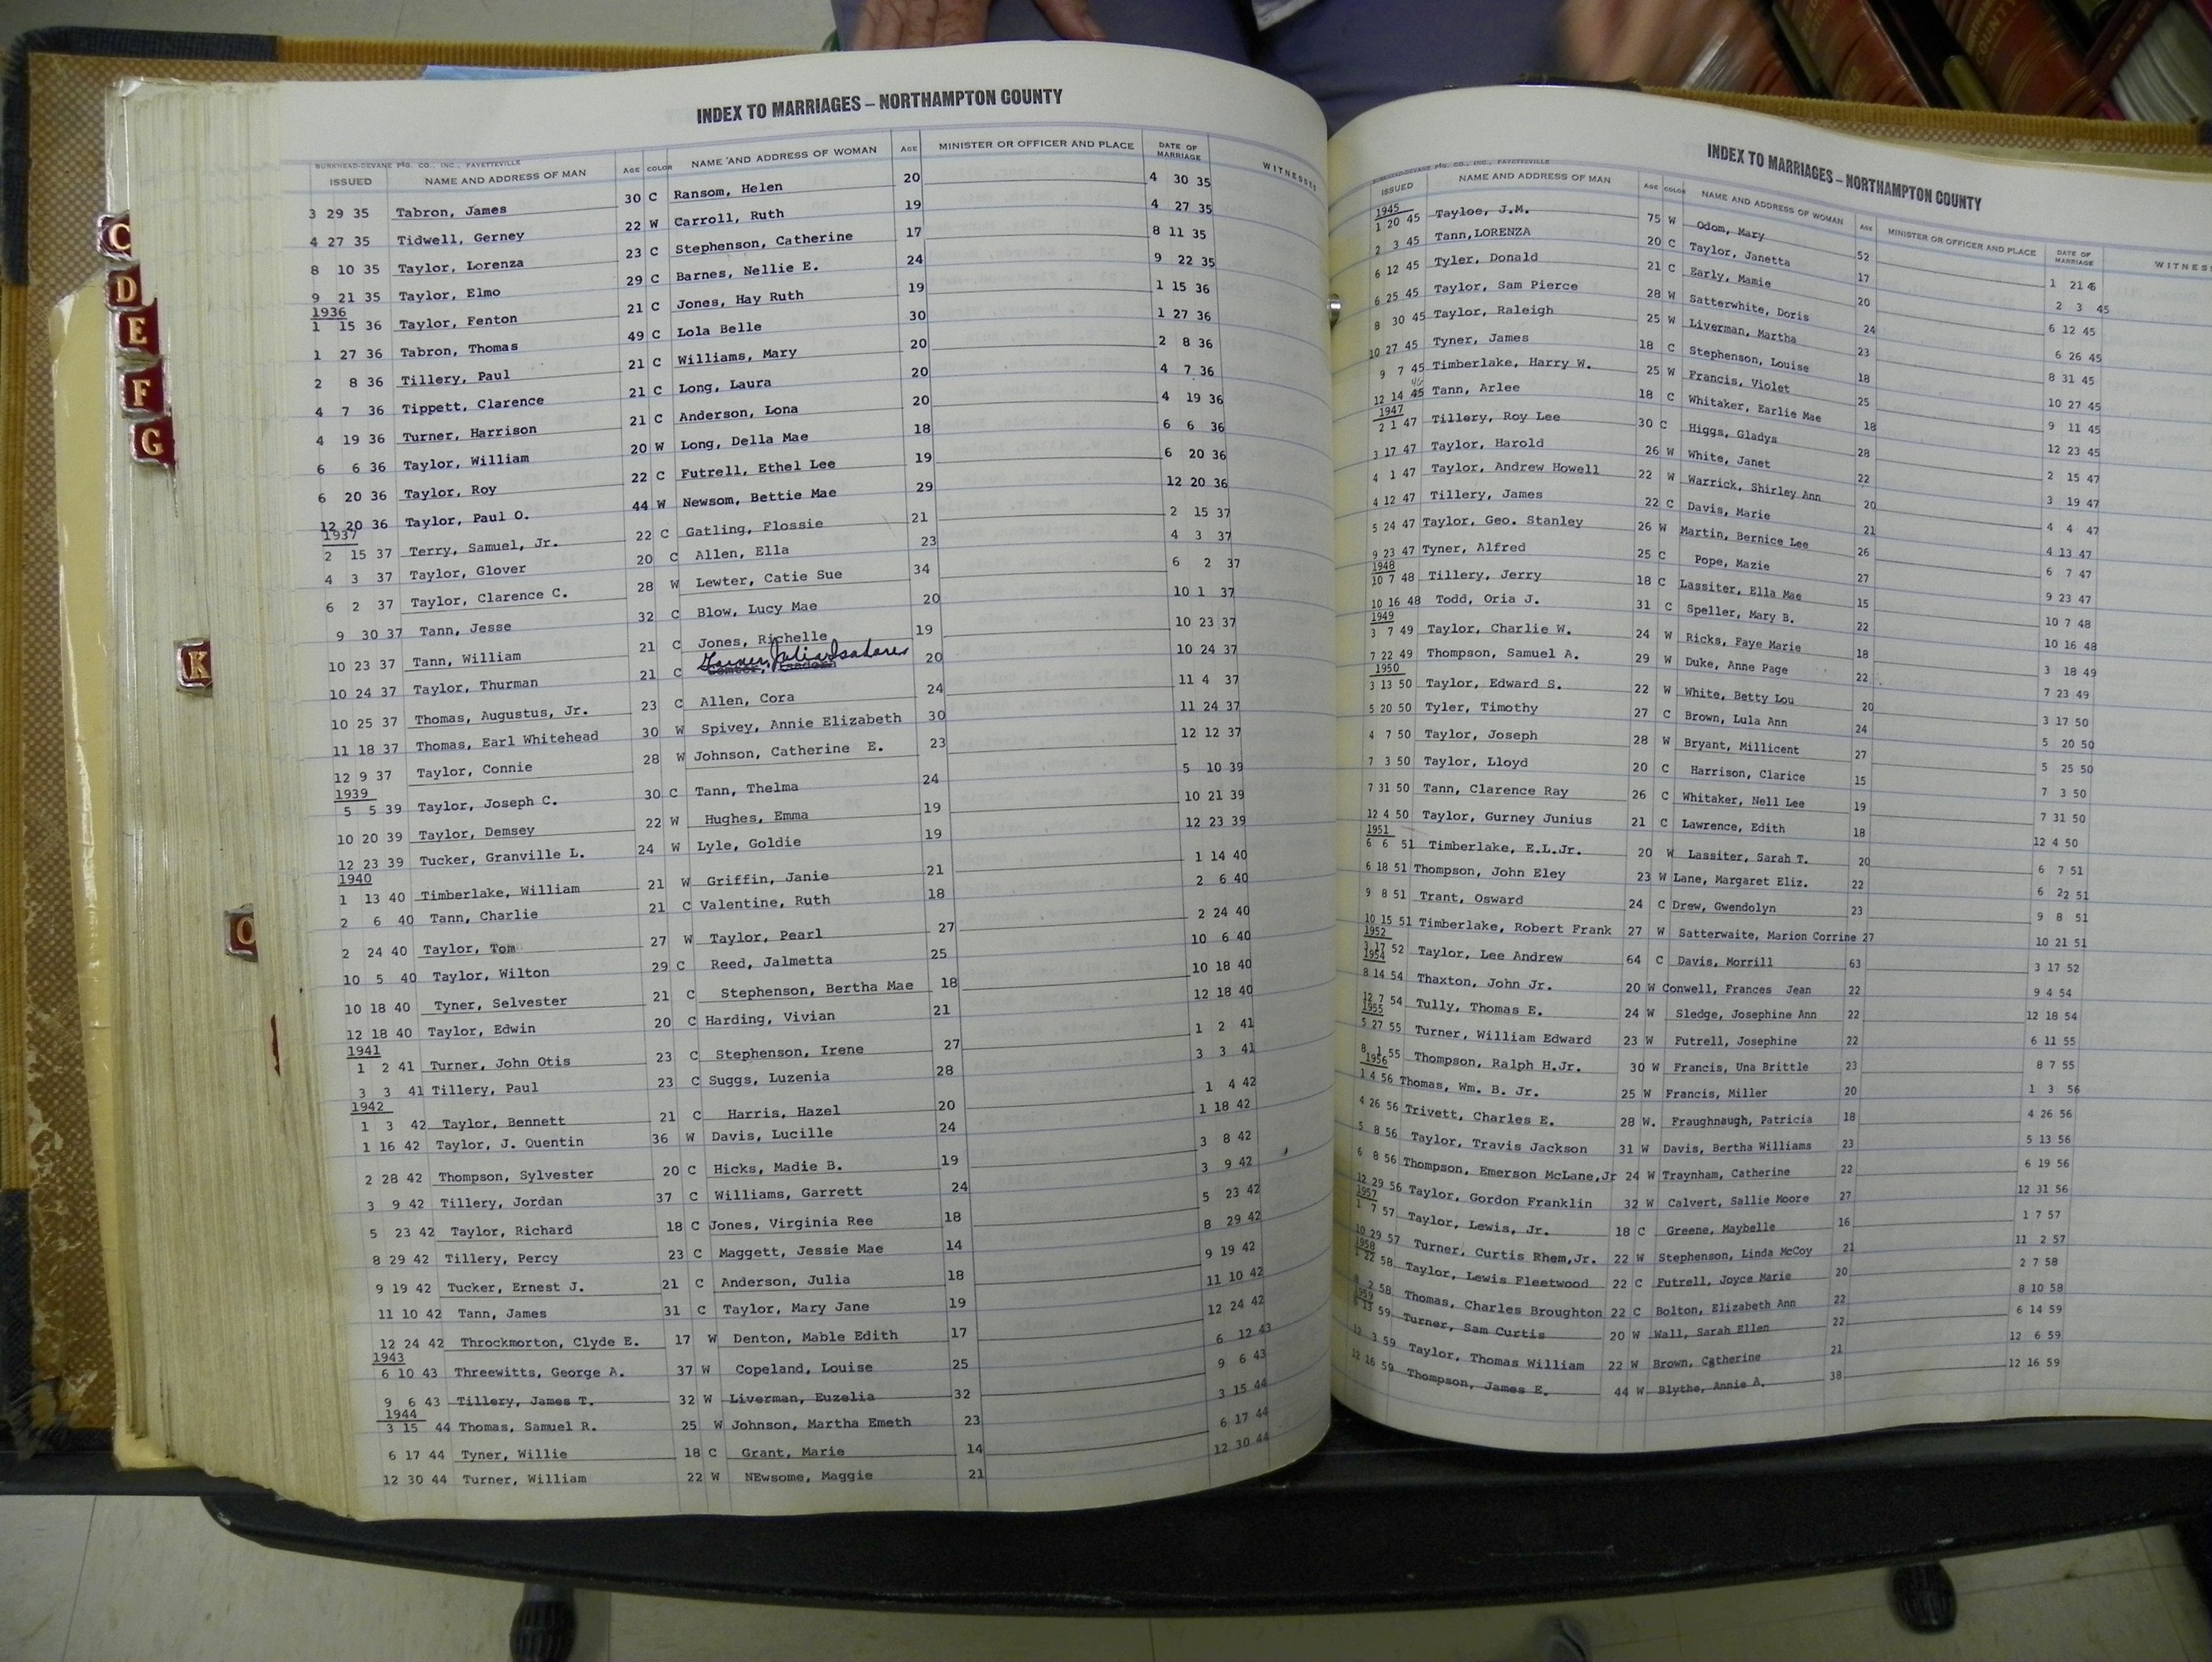 C
D
E
F
G
K
O
INDEX TO MARRIAGES – NORTHAMPTON COUNTY
BURKHEAD-DEVANE P'G. CO., INC., FAYETTEVILLE
ISSUED NAME AND ADDRESS OF MAN AGE COLOR NAME AND ADDRESS OF WOMAN AGE MINISTER OR OFFICER AND PLACE DATE OF MARRIAGE WITNESSES
3 29 35 Tabron, James 30 C Ransom, Helen 20 4 30 35
4 27 35 Tidwell, Gerney 22 W Carroll, Ruth 19 4 27 35
8 10 35 Taylor, Lorenza 23 C Stephenson, Catherine 17 8 11 35
9 21 35 Taylor, Elmo 29 C Barnes, Nellie E. 24 9 22 35
1936
1 15 36 Taylor, Fenton 21 C Jones, Hay Ruth 19 1 15 36
1 27 36 Tabron, Thomas 49 C Lola Belle 30 1 27 36
2 8 36 Tillery, Paul 21 C Williams, Mary 20 2 8 36
4 7 36 Tippett, Clarence 21 C Long, Laura 20 4 7 36
4 19 36 Turner, Harrison 21 C Anderson, Lona 20 4 19 36
6 6 36 Taylor, William 20 W Long, Della Mae 18 6 6 36
6 20 36 Taylor, Roy 22 C Futrell, Ethel Lee 19 6 20 36
12 20 36 Taylor, Paul O. 44 W Newsom, Bettie Mae 29 12 20 36
1937
2 15 37 Terry, Samuel, Jr. 22 C Gatling, Flossie 21 2 15 37
4 3 37 Taylor, Glover 20 C Allen, Ella 23 4 3 37
6 2 37 Taylor, Clarence C. 28 W Lewter, Catie Sue 34 6 2 37
9 30 37 Tann, Jesse 32 C Blow, Lucy Mae 20 10 1 37
10 23 37 Tann, William 21 C Jones, Richelle 19 10 23 37
10 24 37 Taylor, Thurman 21 C Julia 20 10 24 37
10 25 37 Thomas, Augustus, Jr. 23 C Allen, Cora 24 11 4 37
11 18 37 Thomas, Earl Whitehead 30 W Spivey, Annie Elizabeth 30 11 24 37
12 9 37 Taylor, Connie 28 W Johnson, Catherine E. 23 12 12 37
1939
5 5 39 Taylor, Joseph C. 30 C Tann, Thelma 24 5 10 39
10 20 39 Taylor, Demsey 22 W Hughes, Emma 19 10 21 39
12 23 39 Tucker, Granville L. 24 W Lyle, Goldie 19 12 23 39
1940
1 13 40 Timberlake, William 21 W Griffin, Janie 21 1 14 40
2 6 40 Tann, Charlie 21 C Valentine, Ruth 18 2 6 40
2 24 40 Taylor, Tom 27 W Taylor, Pearl 27 2 24 40
10 5 40 Taylor, Wilton 29 C Reed, Jalmetta 25 10 6 40
10 18 40 Tyner, Selvester 21 C Stephenson, Bertha Mae 18 10 18 40
12 18 40 Taylor, Edwin 20 C Harding, Vivian 21 12 18 40
1941
1 2 41 Turner, John Otis 23 C Stephenson, Irene 27 1 2 41
3 3 41 Tillery, Paul 23 C Suggs, Luzenia 28 3 3 41
1942
1 3 42 Taylor, Bennett 21 C Harris, Hazel 20 1 4 42
1 16 42 Taylor, J. Quentin 36 W Davis, Lucille 24 1 18 42
2 28 42 Thompson, Sylvester 20 C Hicks, Madie B. 19 3 8 42
3 9 42 Tillery, Jordan 37 C Williams, Garrett 24 3 9 42
5 23 42 Taylor, Richard 18 C Jones, Virginia Ree 18 5 23 42
8 29 42 Tillery, Percy 23 C Maggett, Jessie Mae 14 8 29 42
9 19 42 Tucker, Ernest J. 21 C Anderson, Julia 18 9 19 42
11 10 42 Tann, James 31 C Taylor, Mary Jane 19 11 10 42
12 24 42 Throckmorton, Clyde E. 17 W Denton, Mable Edith 17 12 24 42
1943
6 10 43 Threewitts, George A. 37 W Copeland, Louise 25 6 12 43
9 6 43 Tillery, James T. 32 W Liverman, Euzelia 32 9 6 43
1944
3 15 44 Thomas, Samuel R. 25 W Johnson, Martha Emeth 23 3 15 44
6 17 44 Tyner, Willie 18 C Grant, Marie 14 6 17 44
12 30 44 Turner, William 22 W NEwsome, Maggie 21 12 30 44
INDEX TO MARRIAGES – NORTHAMPTON COUNTY
BURKHEAD-DEVANE P'G. CO., INC., FAYETTEVILLE
ISSUED NAME AND ADDRESS OF MAN AGE COLOR NAME AND ADDRESS OF WOMAN AGE MINISTER OR OFFICER AND PLACE DATE OF MARRIAGE WITNES
1945
1 20 45 Tayloe, J.M. 75 W Odom, Mary 52 1 21 45
2 3 45 Tann, LORENZA 20 C Taylor, Janetta 17 2 3 45
6 12 45 Tyler, Donald 21 C Early, Mamie 20 6 12 45
6 25 45 Taylor, Sam Pierce 28 W Satterwhite, Doris 24 6 26 45
8 30 45 Taylor, Raleigh 25 W Liverman, Martha 23 8 31 45
10 27 45 Tyner, James 18 C Stephenson, Louise 18 10 27 45
9 7 45 Timberlake, Harry W. 25 W Francis, Violet 25 9 11 45
12 14 45 Tann, Arlee 18 C Whitaker, Earlie Mae 18 12 23 45
1947
2 1 47 Tillery, Roy Lee 30 C Higgs, Gladys 28 2 15 47
3 17 47 Taylor, Harold 26 W White, Janet 22 3 19 47
4 1 47 Taylor, Andrew Howell 22 W Warrick, Shirley Ann 20 4 4 47
4 12 47 Tillery, James 22 C Davis, Marie 21 4 13 47
5 24 47 Taylor, Geo. Stanley 26 W Martin, Bernice Lee 26 6 7 47
9 23 47 Tyner, Alfred 25 C Pope, Mazie 27 9 23 47
1948
10 7 48 Tillery, Jerry 18 C Lassiter, Ella Mae 15 10 7 48
10 16 48 Todd, Oria J. 31 C Speller, Mary B. 22 10 16 48
1949
3 7 49 Taylor, Charlie W. 24 W Ricks, Faye Marie 18 3 18 49
7 22 49 Thompson, Samuel A. 29 W Duke, Anne Page 22 7 23 49
1950
3 13 50 Taylor, Edward S. 22 W White, Betty Lou 20 3 17 50
5 20 50 Tyler, Timothy 27 C Brown, Lula Ann 24 5 20 50
4 7 50 Taylor, Joseph 28 W Bryant, Millicent 27 5 25 50
7 3 50 Taylor, Lloyd 20 C Harrison, Clarice 15 7 3 50
7 31 50 Tann, Clarence Ray 26 C Whitaker, Nell Lee 19 7 31 50
12 4 50 Taylor, Gurney Junius 21 C Lawrence, Edith 18 12 4 50
1951
6 6 51 Timberlake, E.L.Jr. 20 W Lassiter, Sarah T. 20 6 7 51
6 18 51 Thompson, John Eley 23 W Lane, Margaret Eliz. 22 6 22 51
9 8 51 Trant, Osward 24 C Drew, Gwendolyn 23 9 8 51
10 15 51 Timberlake, Robert Frank 27 W Satterwaite, Marion Corrine 27 10 21 51
1952
3 17 52 Taylor, Lee Andrew 64 C Davis, Morrill 63 3 17 52
1954
8 14 54 Thaxton, John Jr. 20 W Conwell, Frances Jean 22 9 4 54
12 7 54 Tully, Thomas E. 24 W Sledge, Josephine Ann 22 12 18 54
1955
5 27 55 Turner, William Edward 23 W Futrell, Josephine 22 6 11 55
8 1 55 Thompson, Ralph H.Jr. 30 W Francis, Una Brittle 23 8 7 55
1956
1 4 56 Thomas, Wm. B. Jr. 25 W Francis, Miller 20 1 3 56
4 26 56 Trivett, Charles E. 28 W. Fraughnaugh, Patricia 18 4 26 56
5 8 56 Taylor, Travis Jackson 31 W Davis, Bertha Williams 23 5 13 56
6 8 56 Thompson, Emerson McLane,Jr 24 W Traynham, Catherine 22 6 19 56
12 29 56 Taylor, Gordon Franklin 32 W Calvert, Sallie Moore 27 12 31 56
1957
1 7 57 Taylor, Lewis, Jr. 18 C Greene, Maybelle 16 1 7 57
10 29 57 Turner, Curtis Rhem,Jr. 22 W Stephenson, Linda McCoy 21 11 2 57
1958
1 22 58 Taylor, Lewis Fleetwood 22 C Futrell, Joyce Marie 20 2 7 58
2 58 Thomas, Charles Broughton 22 C Bolton, Elizabeth Ann 22 8 10 58
1959
6 13 59 Turner, Sam Curtis 20 W Wall, Sarah Ellen 22 6 14 59
12 3 59 Taylor, Thomas William 22 W Brown, Catherine 21 12 6 59
12 16 59 Thompson, James E. 44 W Blythe, Annie A. 38 12 16 59